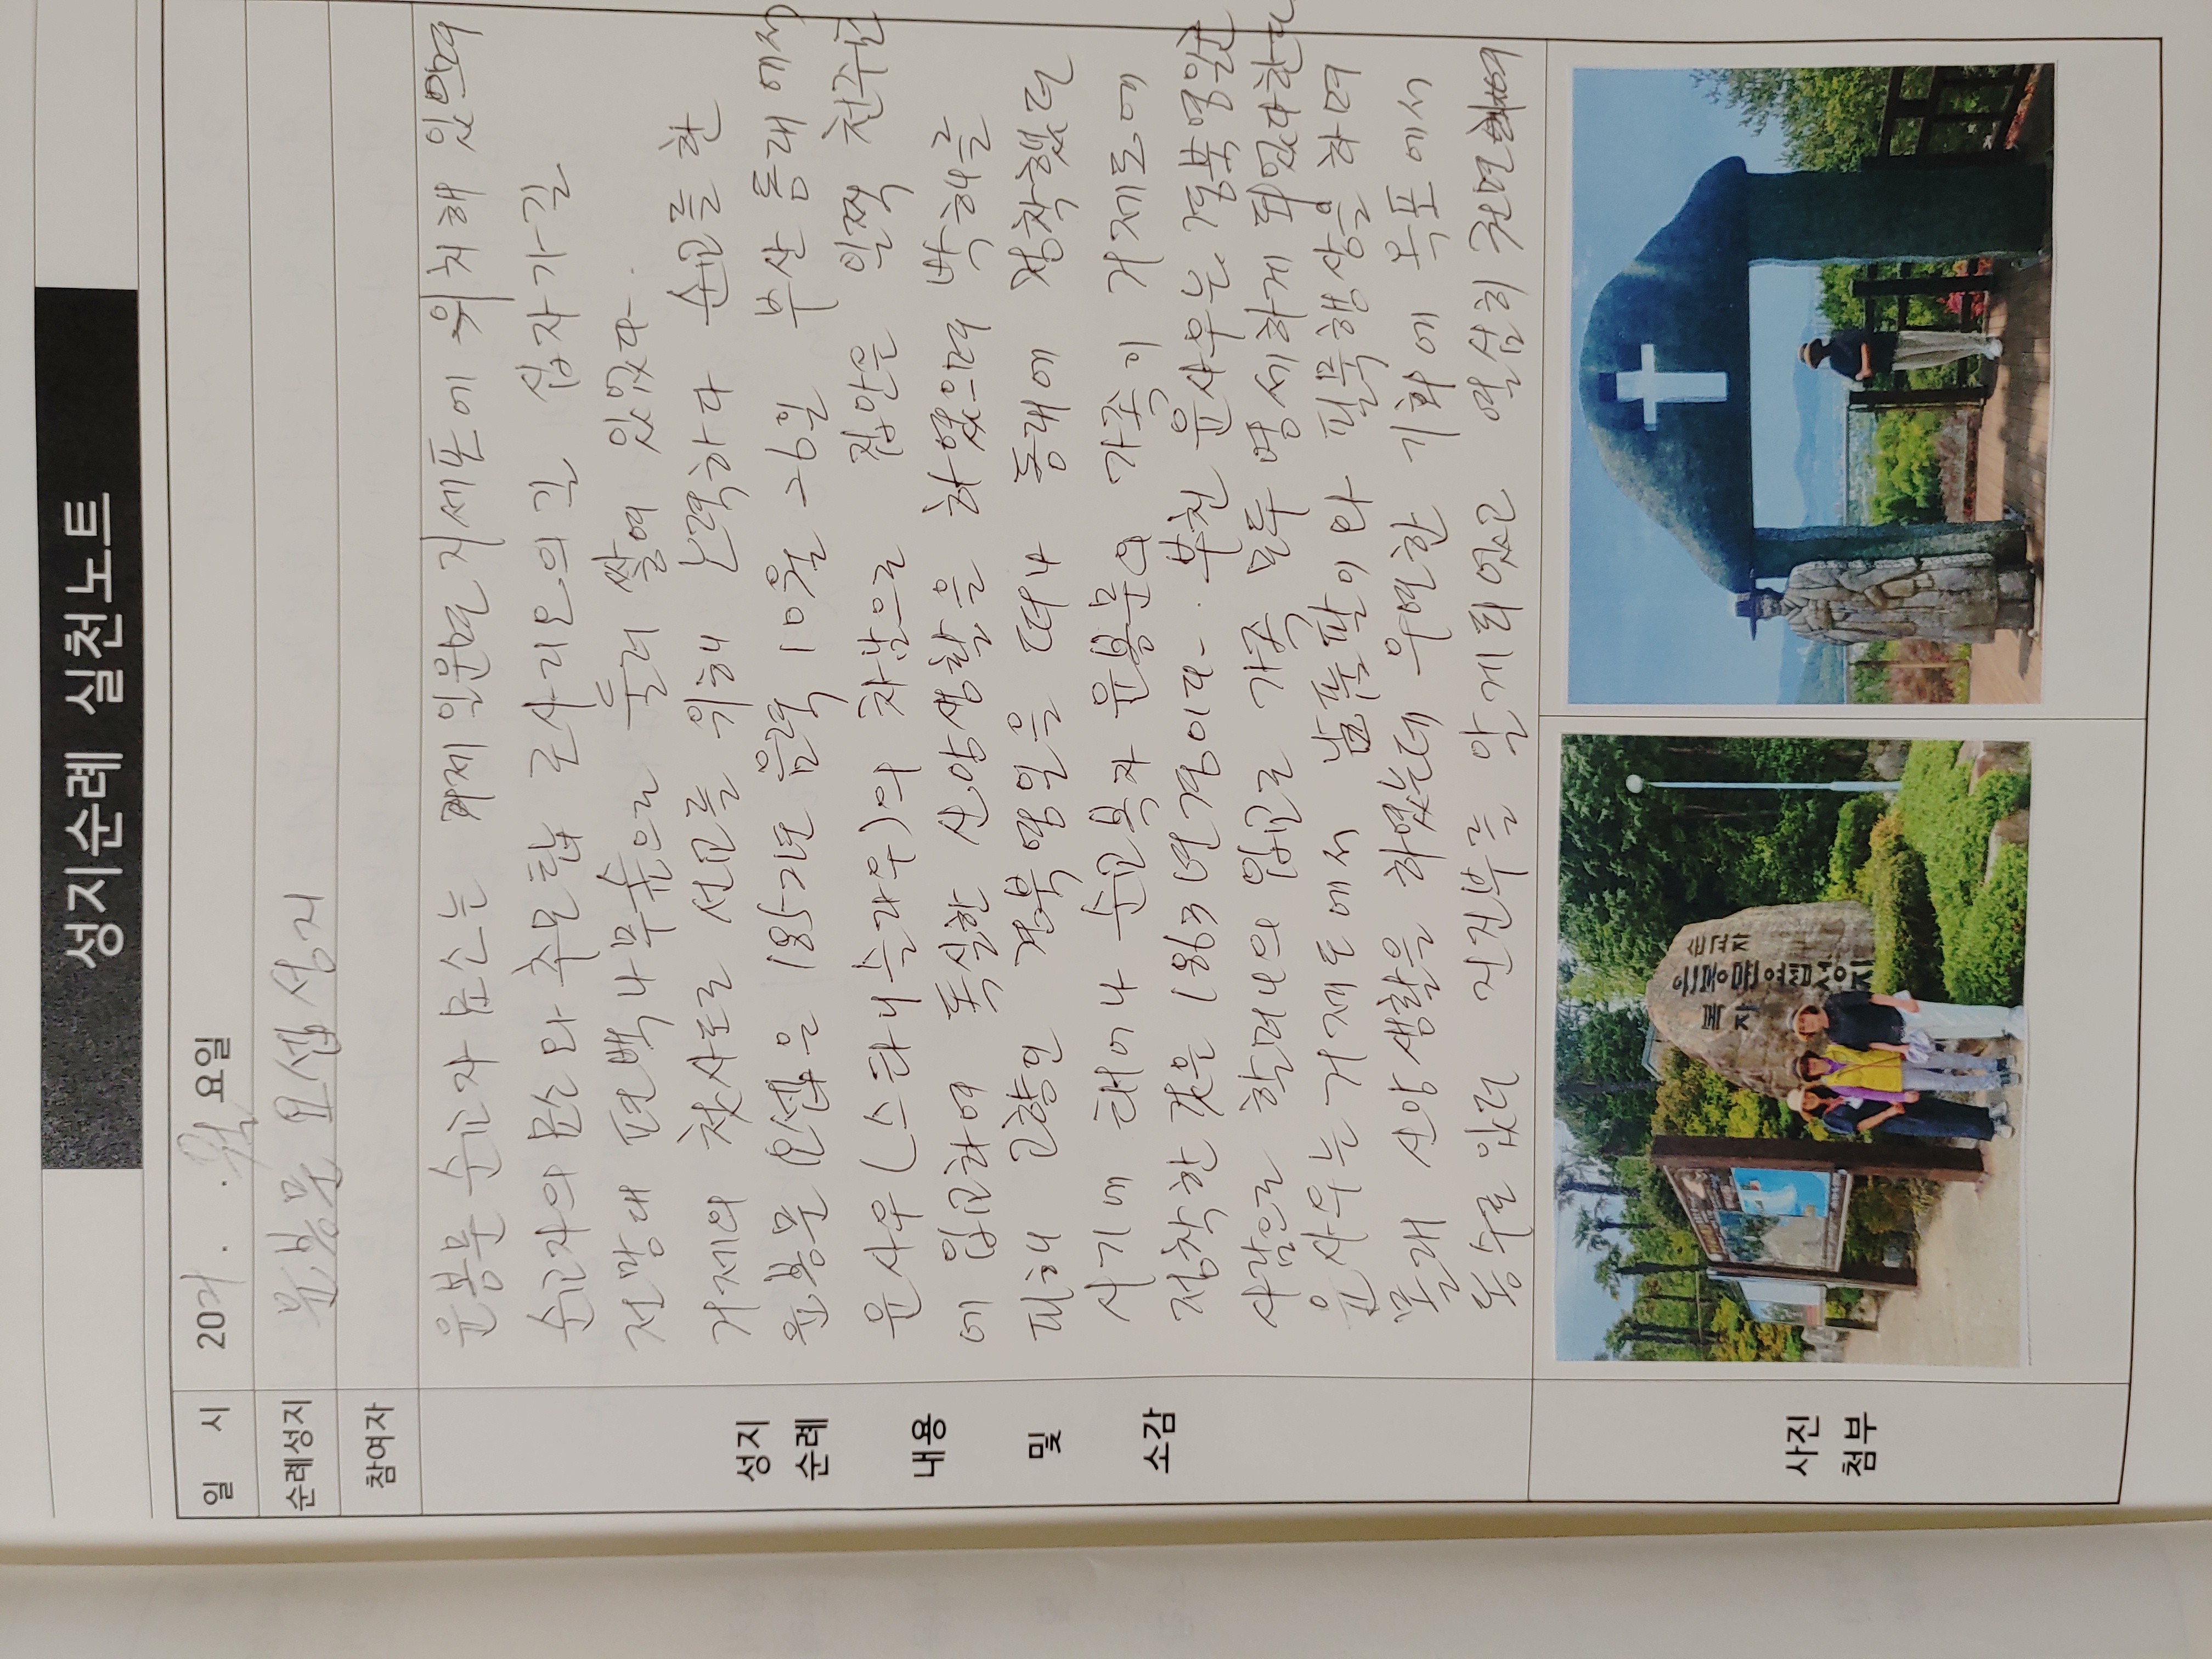 성지순례 실천노트
일 시 20 . . 월요일
순례성지 윤봉문 요셉 성지
참여자
성지 순례 내용 및 소감
윤봉문 순교자 묘소는 거제 일운면 지세포에 위치해 있으며
순교자의 묘소와 추모탑 로사리오의길 십자가길
전망대 편백나무숲으로 둘러 쌓여 있었다.
거제의 첫사도로 선교를 위해 노력하다 순교를 한
윤봉문 요셉은 1852년도 음력 10월 26일 부산 동래에서
윤사우(스타니슬라우)의 차남으로 집안은 일찍 천주교
에 입교하여 독실한 신앙생활을 하였으며 박해를
피해 고향인 경북영일을 떠나 동래에 정착했던
시기에 태어나 순교복자 윤봉문의 가족이 거제도에
정착한 것은 1863년경이다. 부친 윤사우는 경북영일군
사람으로 할머니의 입교로 가족 모두 영세하게 되었다한다
윤사우는 거제도에서 날품팔이와 필묵행상을 하며
몰래 신앙생활을 하였는데 우연한 기회에 목포에서
동수로 있던 진진부를 알게되었고 열심히 권면하여
사진 첨부
순교자
윤봉문요셉성지
복자